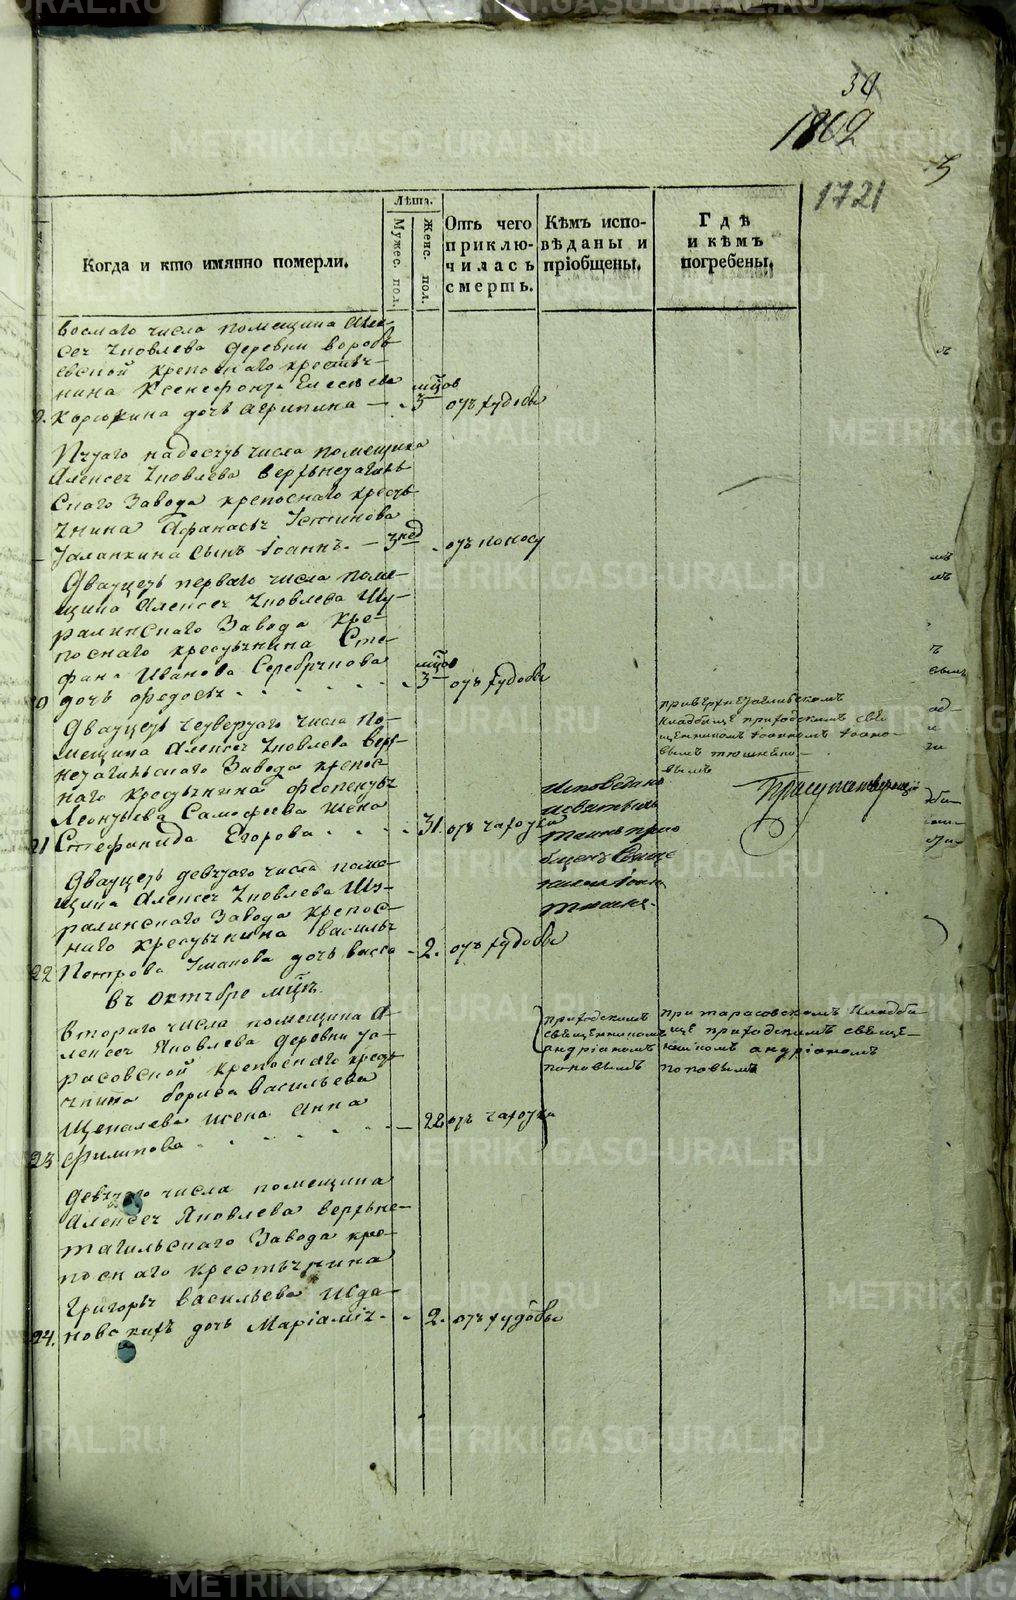 34
1802
1721
Лѣта.
Когда и кто имянно померли.
Мужес. пол.
Женс. пол.
Отъ чего приклю-чилась смерть.
Кѣмъ испо-вѣданы и пріобщены.
Гдѣ и кѣмъ погребены.
восмаго числа помещика Алек-
сея Яковлева деревни вороб-
евской крепоснаго крестья-
нина Ксенефонта Елесеева
Корюкина дочь агрипина — 3 мцов отъ худобы
Пятаго надесять числа помещика
Алексея Яковлева верхнетагиль
скаго Завода крепоснаго кресть
янина Афанасья Устинова
Галанкина сынъ Іоаннъ. — 3 нед отъ поносу
Двадцеть перваго числа поме-
щика Алексея Яковлева Шу-
ралинскаго Завода кре-
поснаго крестьянина Сте-
фана Иванова Серебрякова
дочь Федосья 3 мцов отъ худобы
Двадцеть четвертаго числа по-
мещика Алексея Яковлева верх-
нетагильскаго Завода крепос-
наго крестьянина
Леонтьева Самофеева жена
21 Стефанида Егорова 31 отъ чахотки
исповедана
и святыхъ
таинъ прио
бщена Свяще
ником Іоан
при верхнетагильскомъ
кладбище приходскимъ свя
щенником Іоанномъ
Двадцеть девятаго числа поме-
щика Алексея Яковлева Шу-
ралинскаго Завода крепос-
наго крестьянина василья
22 Петрова Уманова дочь васса 2. отъ худобы
въ октябре мцѣ
втораго числа помещика А-
лексея Яковлева деревни та-
расовской крепоснаго кресть
янина бориса васильева
Щепалева жена анна
23 Филипова 22 отъ чахотки
приходскимъ
священникомъ
андріаномъ
поповымъ
при тарасовскомъ кладби-
ще приходскимъ свяще-
никомъ андріаномъ
поповымъ
девятаго числа помещика
Алексея Яковлева верхне-
тагильскаго Завода кре-
поснаго крестьянина
Григорья васильева Жда-
24. новскихъ дочь Маріамія 2. отъ худобы
METRIKI.GASO-URAL.RU